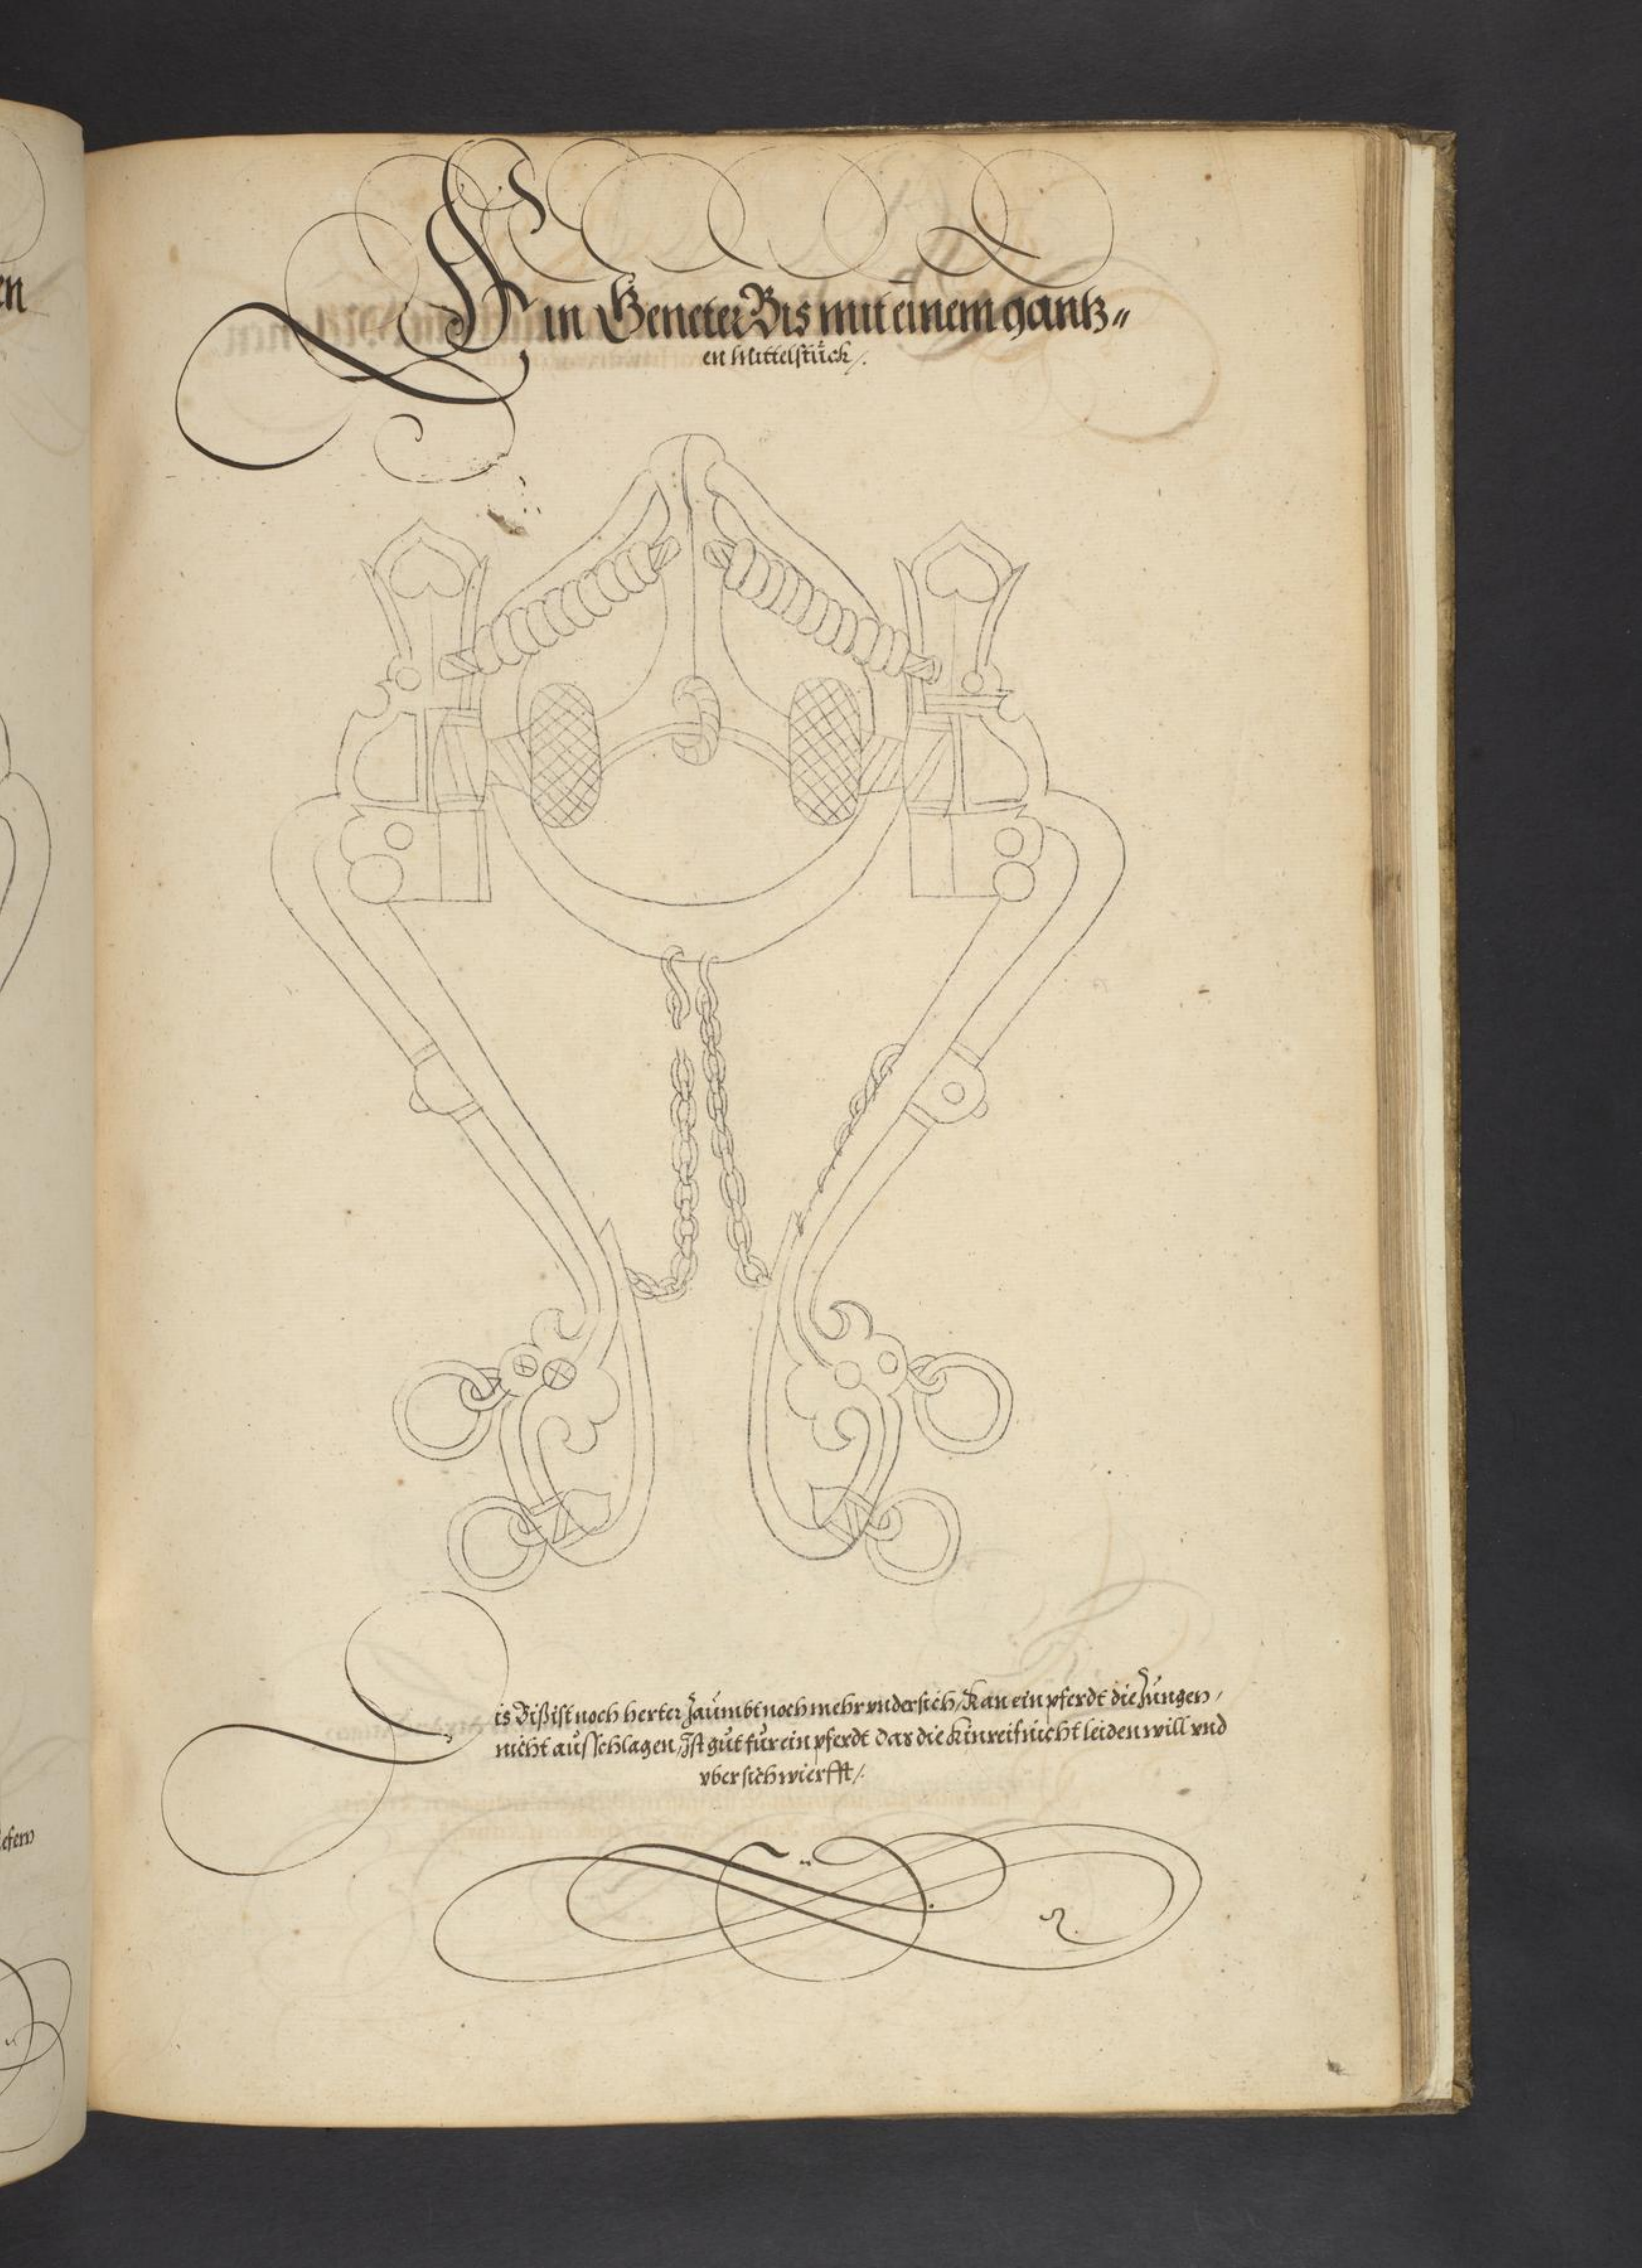 Ein Geneter Bis mit einem gantz〃
en Mittelstück/.
Dis Bißist noch herter Zaümbt noch mehr vndersich/ Kan ein pferdt die Zungen/
nicht ausschlagen, Jst güt für ein pferdt das die kinreif nicht leiden will vnd
vber sich wierfft/.
en